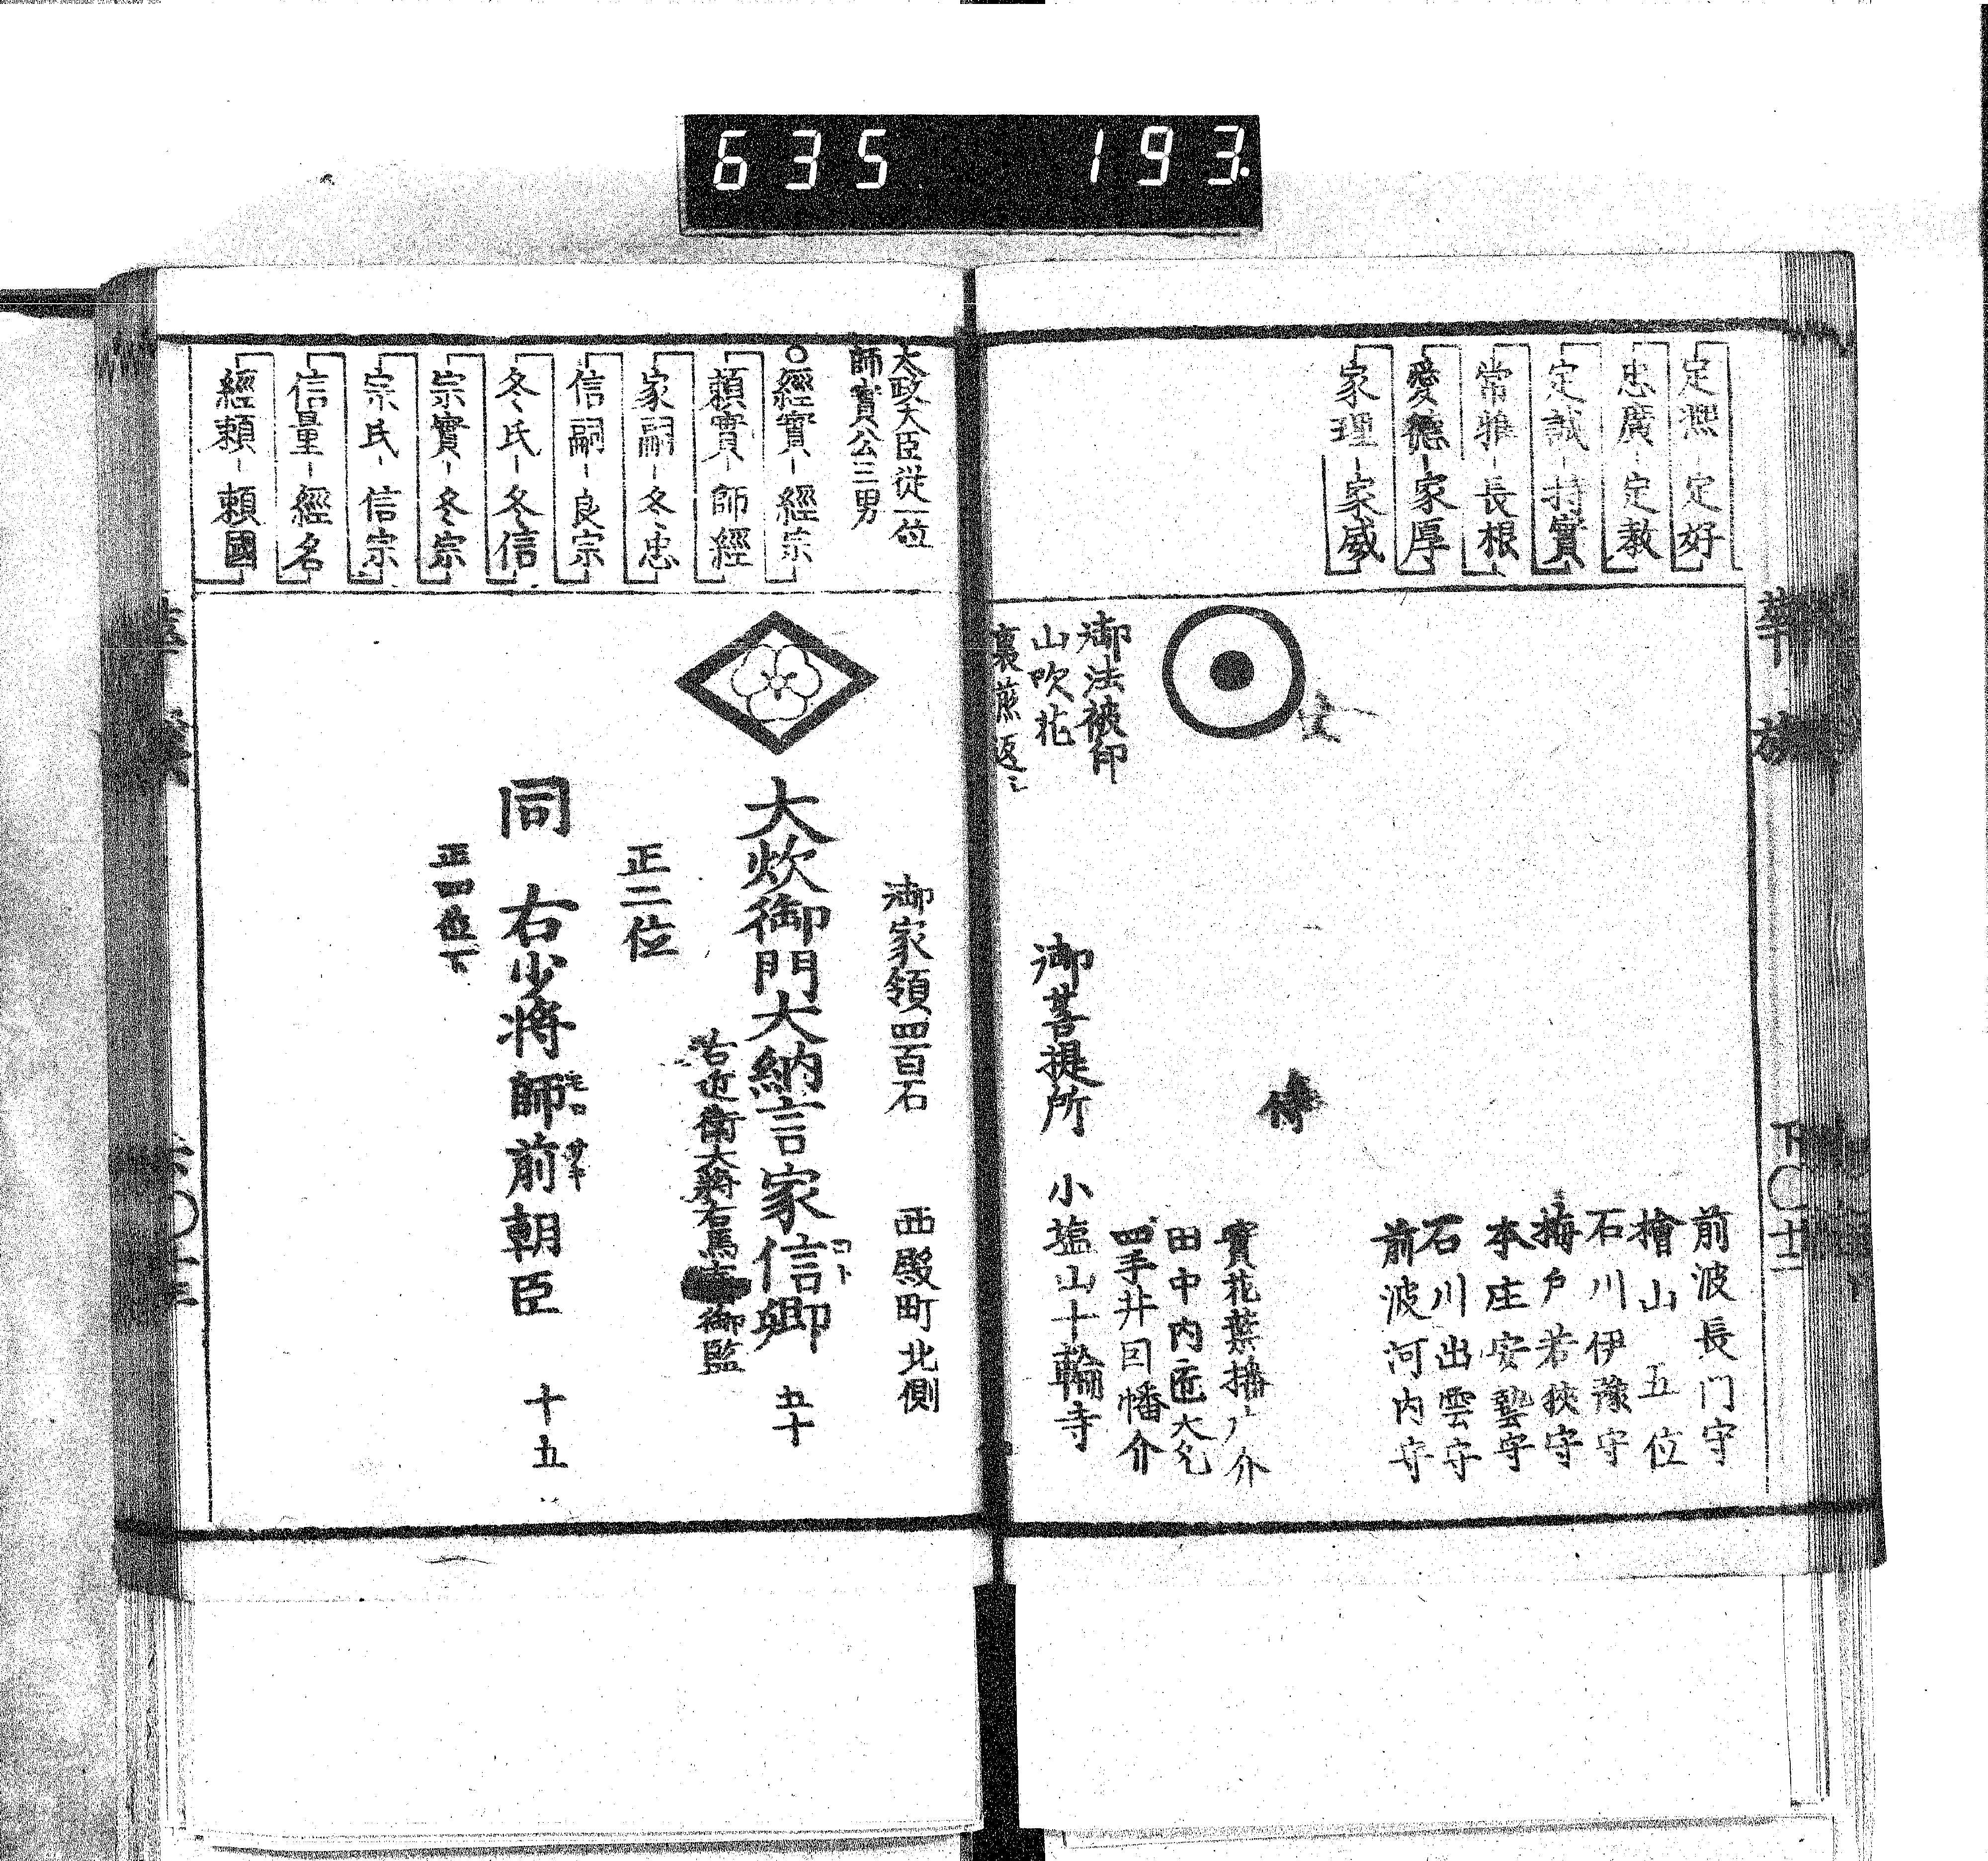 635 193
定熙-定好
忠廣-定教
定誠-持實
常雅-長根
愛德-家厚
家理-家威
御法被印
山吹花
裏菱返シ
侍
前波長门守
檜山五位
石川伊豫守
梅戸若狭守
本庄安藝守
石川出雲守
前波河内守
實花葉播广介
田中内匠大允
四手井因幡介
御菩提所 小塩山十輪寺
華族
下〇十二
太政大臣従一位
師實公三男
〇經實-經宗
頼實-師經
家嗣-冬忠
信嗣-良宗
冬氏-冬信
宗實-冬宗
宗氏-信宗
信量-經名
經頼-頼國
御家領四百石 西殿町北側
大炊御門大納言家信卿 五十
コト
右近衛大将右馬寮御監
正二位
同 右少将師前朝臣 十五
モロ サキ
正四位下